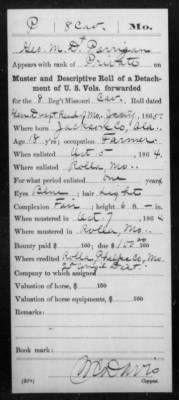 P | 8 Cav. | Mo.
Geo. M. D. Parrigan
Appears with rank of Private on
Muster and Descriptive Roll of a Detach-
ment of U. S. Vols. forwarded
for the 8 Reg't Missouri Cav. Roll dated
1865
Where born Jackson Co, Ala.
Age 18 y'rs; occupation Farmer
When enlisted Oct 5, 1864
Where enlisted Rolla, Mo.
For what period enlisted one years
Eyes Blue; hair Light
Complexion Fair; height 6 ft. – in.
When mustered in Oct 7, 1864
Where mustered in Rolla, Mo.
Bounty paid $ 100; due $ 100 100
Where credited Rolla, Phelps Co, Mo.
Dist.
Company to which assigned
Valuation of horse, $ 100
Valuation of horse equipments, $ 100
Remarks:
Book mark:
Davis
Copyist.